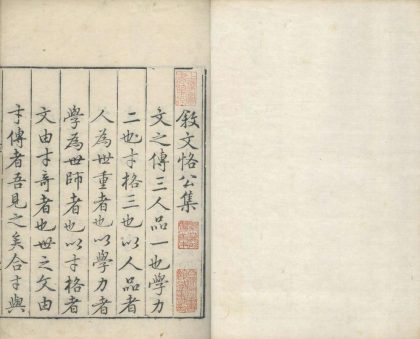 敘文恪公集
文之傳三人品一也學力
二也才格三也以人品者
人為世重者也以學力者
學為世師者也以才格者
文由才奇者也世之文由
才傳者吾見之矣合才與